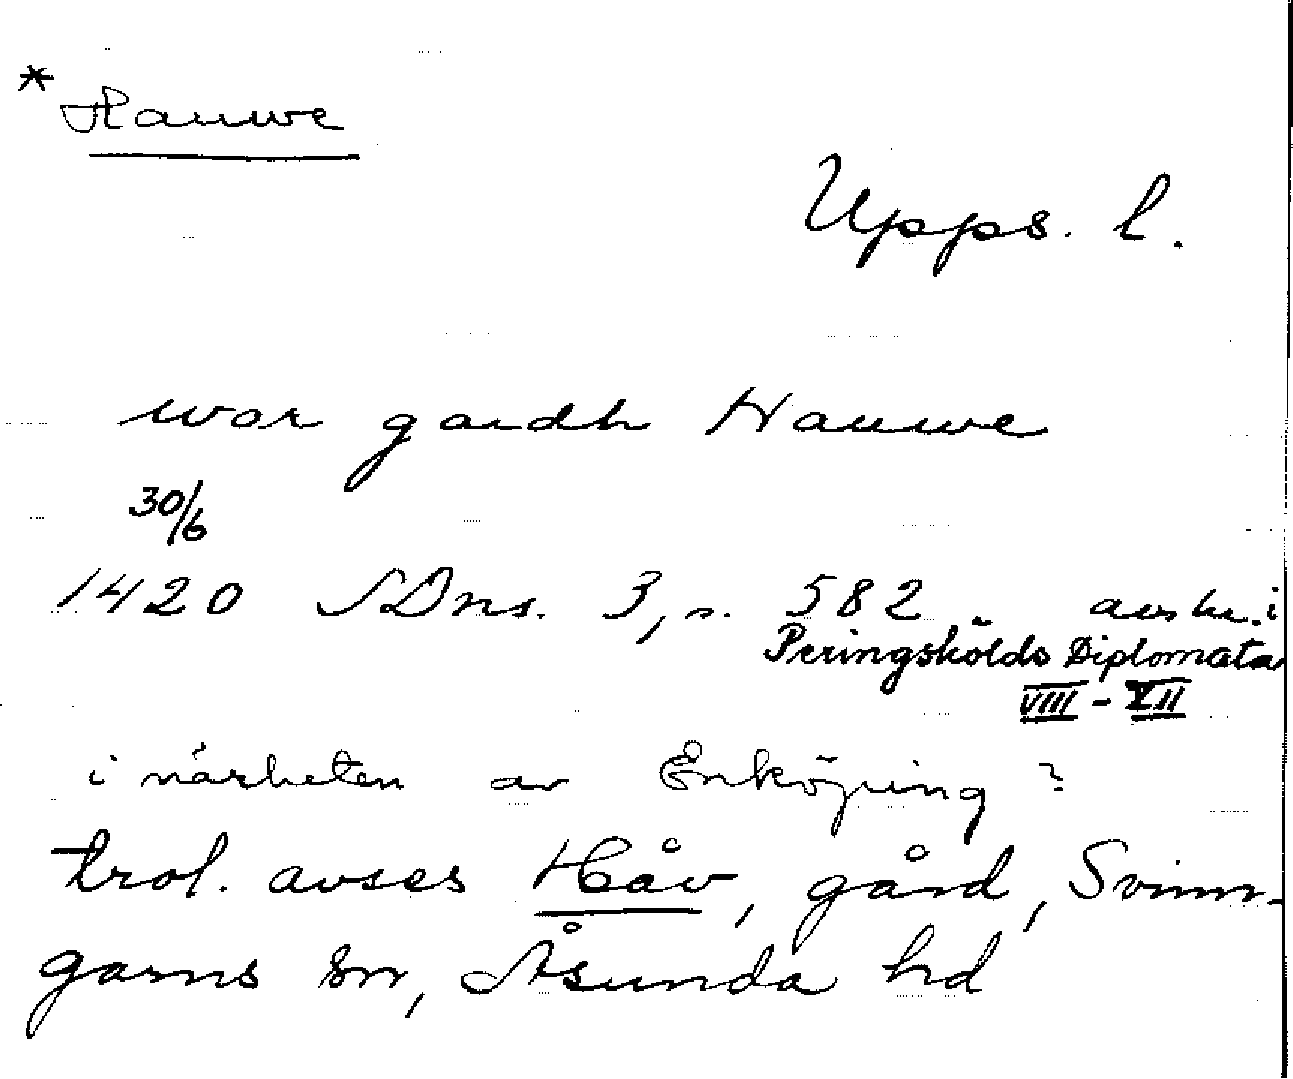 * Hauwe
Upps. l.
wor gardh Hauwe
30/6
1420 SDns. 3, s. 582. avskr. i
Peringskölds Diplomata
VIII - XII
i närheten av Enköping?
trol. avses Håv, gård, Svinn-
garns sn, Åsunda hd